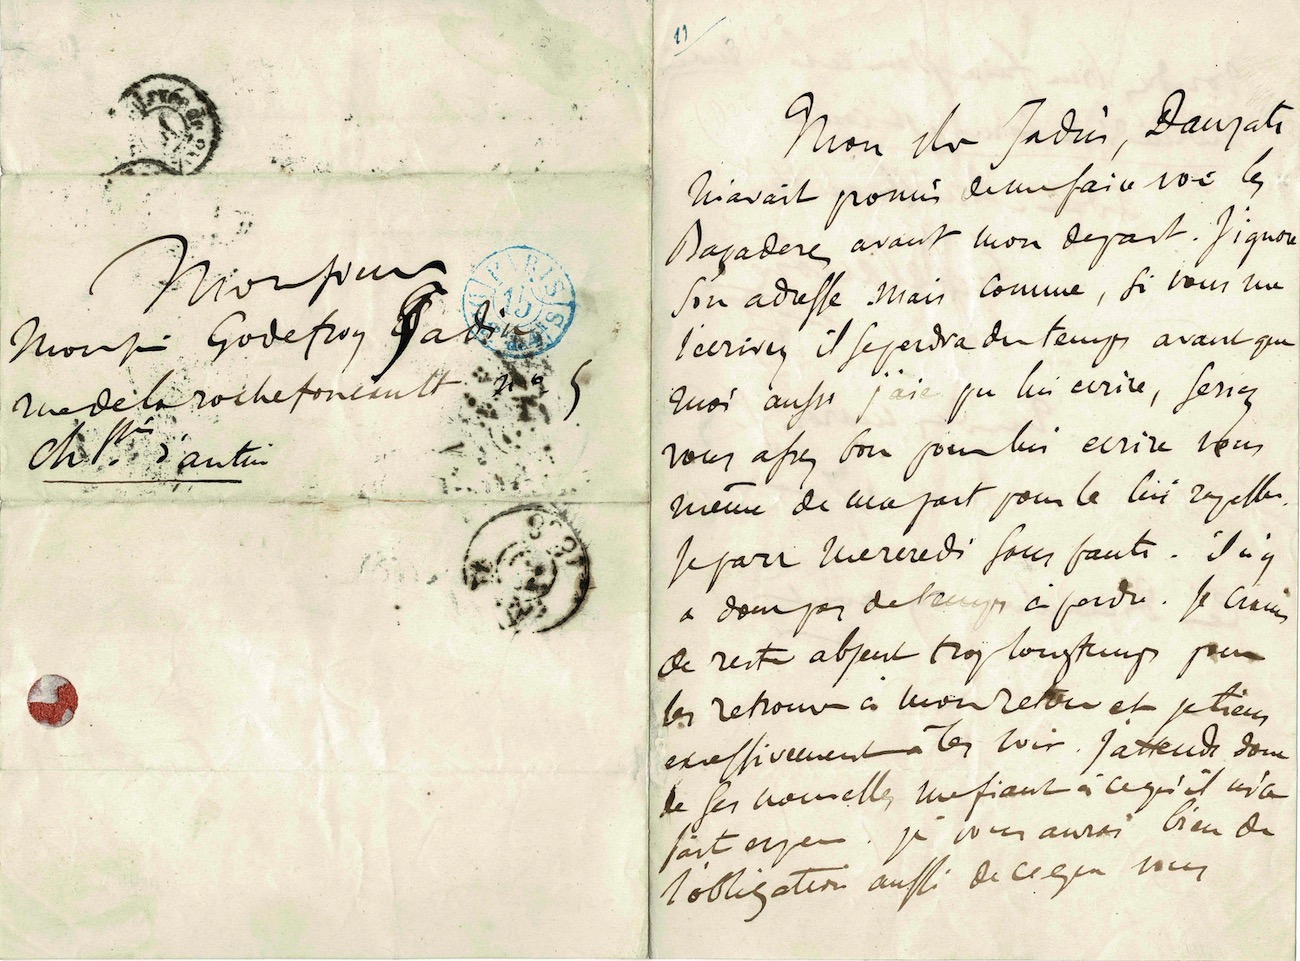 Monsieur
Monsieur Godefroy Jadin
rue de la rochefoucault n° 5
chssée d'antin
PARIS
15
11
Mon cher Jadin, Dauzats
m'avait promis de me faire voir les
Bayaderes avant mon depart. J'ignore
son adresse mais comme, si vous me
l'ecrivez il se perdra du temps avant que
moi aussi j'aie pu lui ecrire, seriez
vous assez bon pour lui ecrire vous
même de ma part pour le lui rappeller.
Je pars mercredi sans faute. il n'y
a donc pas de temps à perdre. Je crains
de rester absent trop longtemps pour
les retrouver à mon retour et je tiens
excessivement à les voir. J'attends donc
de ses nouvelles me fiant à ce qu'il m'a
fait esperer. je vous aurai bien de
l'obligation aussi de ce que vous